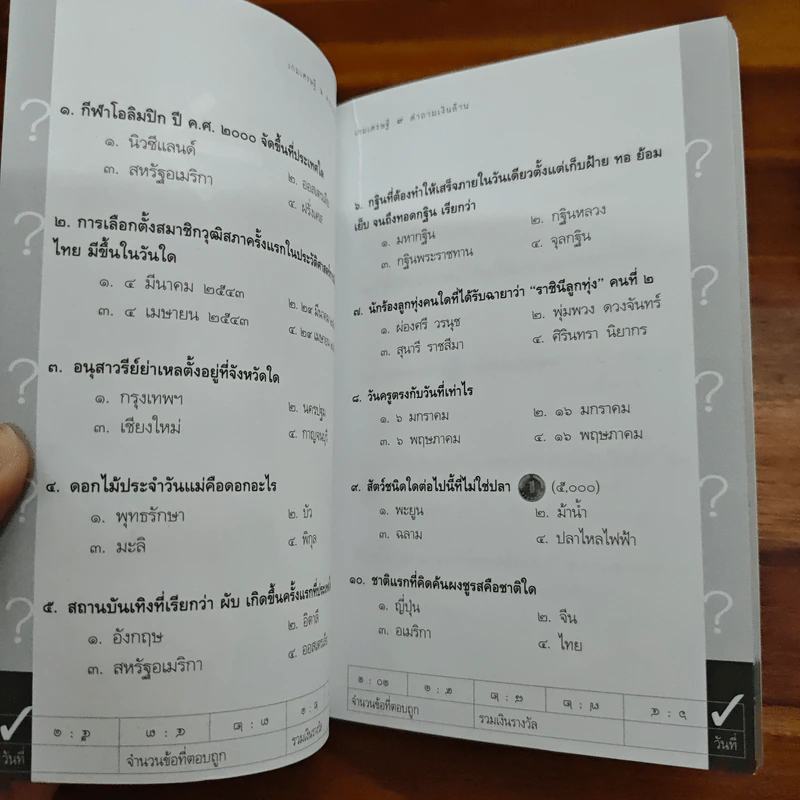 เกมเศรษฐี ๑
๑. กีฬาโอลิมปิก ปี ค.ศ. ๒๐๐๐ จัดขึ้นที่ประเทศใด
๑. นิวซีแลนด์
๒.
๓. สหรัฐอเมริกา
๔. ฝรั่งเศส
๒. การเลือกตั้งสมาชิกวุฒิสภาครั้งแรกในประวัติศาสตร์
ไทย มีขึ้นในวันใด
๑. ๔ มีนาคม ๒๕๔๓
๒. ๒๙ มีนาคม
๓. ๔ เมษายน ๒๕๔๓
๔. ๒๙ เมษายน
๓. อนุสาวรีย์ย่าเหลตั้งอยู่ที่จังหวัดใด
๑. กรุงเทพฯ
๒. นครปฐม
๓. เชียงใหม่
๔. กาญจนบุรี
๔. ดอกไม้ประจำวันแม่คือดอกอะไร
๑. พุทธรักษา
๒. บัว
๓. มะลิ
๔. พิกุล
๕. สถานบันเทิงที่เรียกว่า ผับ เกิดขึ้นครั้งแรกที่ประเทศ
๑. อังกฤษ
๒. อิตาลี
๓. สหรัฐอเมริกา
๔.
จำนวนข้อที่ตอบถูก
รวมเงินรางวัล
วันที่
เกมเศรษฐี ๙ คำถามเงินล้าน
๖. กฐินที่ต้องทำให้เสร็จภายในวันเดียวตั้งแต่เก็บฝ้าย ทอ ย้อม
เย็บ จนถึงทอดกฐิน เรียกว่า
๑. มหากฐิน
๒. กฐินหลวง
๓. กฐินพระราชทาน
๔. จุลกฐิน
๗. นักร้องลูกทุ่งคนใดที่ได้รับฉายาว่า “ราชินีลูกทุ่ง” คนที่ ๒
๑. ผ่องศรี วรนุช
๒. พุ่มพวง ดวงจันทร์
๓. สุนารี ราชสีมา
๔. ศิรินทรา นิยากร
๘. วันครูตรงกับวันที่เท่าไร
๑. ๖ มกราคม
๒. ๑๖ มกราคม
๓. ๖ พฤษภาคม
๔. ๑๖ พฤษภาคม
๙. สัตว์ชนิดใดต่อไปนี้ที่ไม่ใช่ปลา (๕,๐๐๐)
๑. พะยูน
๒. ม้าน้ำ
๓. ฉลาม
๔. ปลาไหลไฟฟ้า
๑๐. ชาติแรกที่คิดค้นผงชูรสคือชาติใด
๑. ญี่ปุ่น
๒. จีน
๓. อเมริกา
๔. ไทย
จำนวนข้อที่ตอบถูก
รวมเงินรางวัล
วันที่